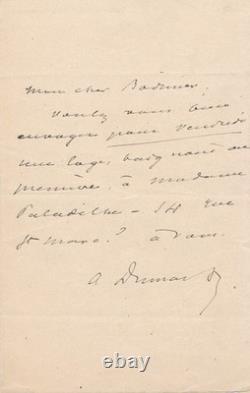 Mon cher Bodinier,
Voulez vous bien
envoyer pour Vendredi
une loge, baignoire ou
première, à Madame
Paladilhe - 14 rue
St Marc? à vous.
A Dumas f.
© ebay